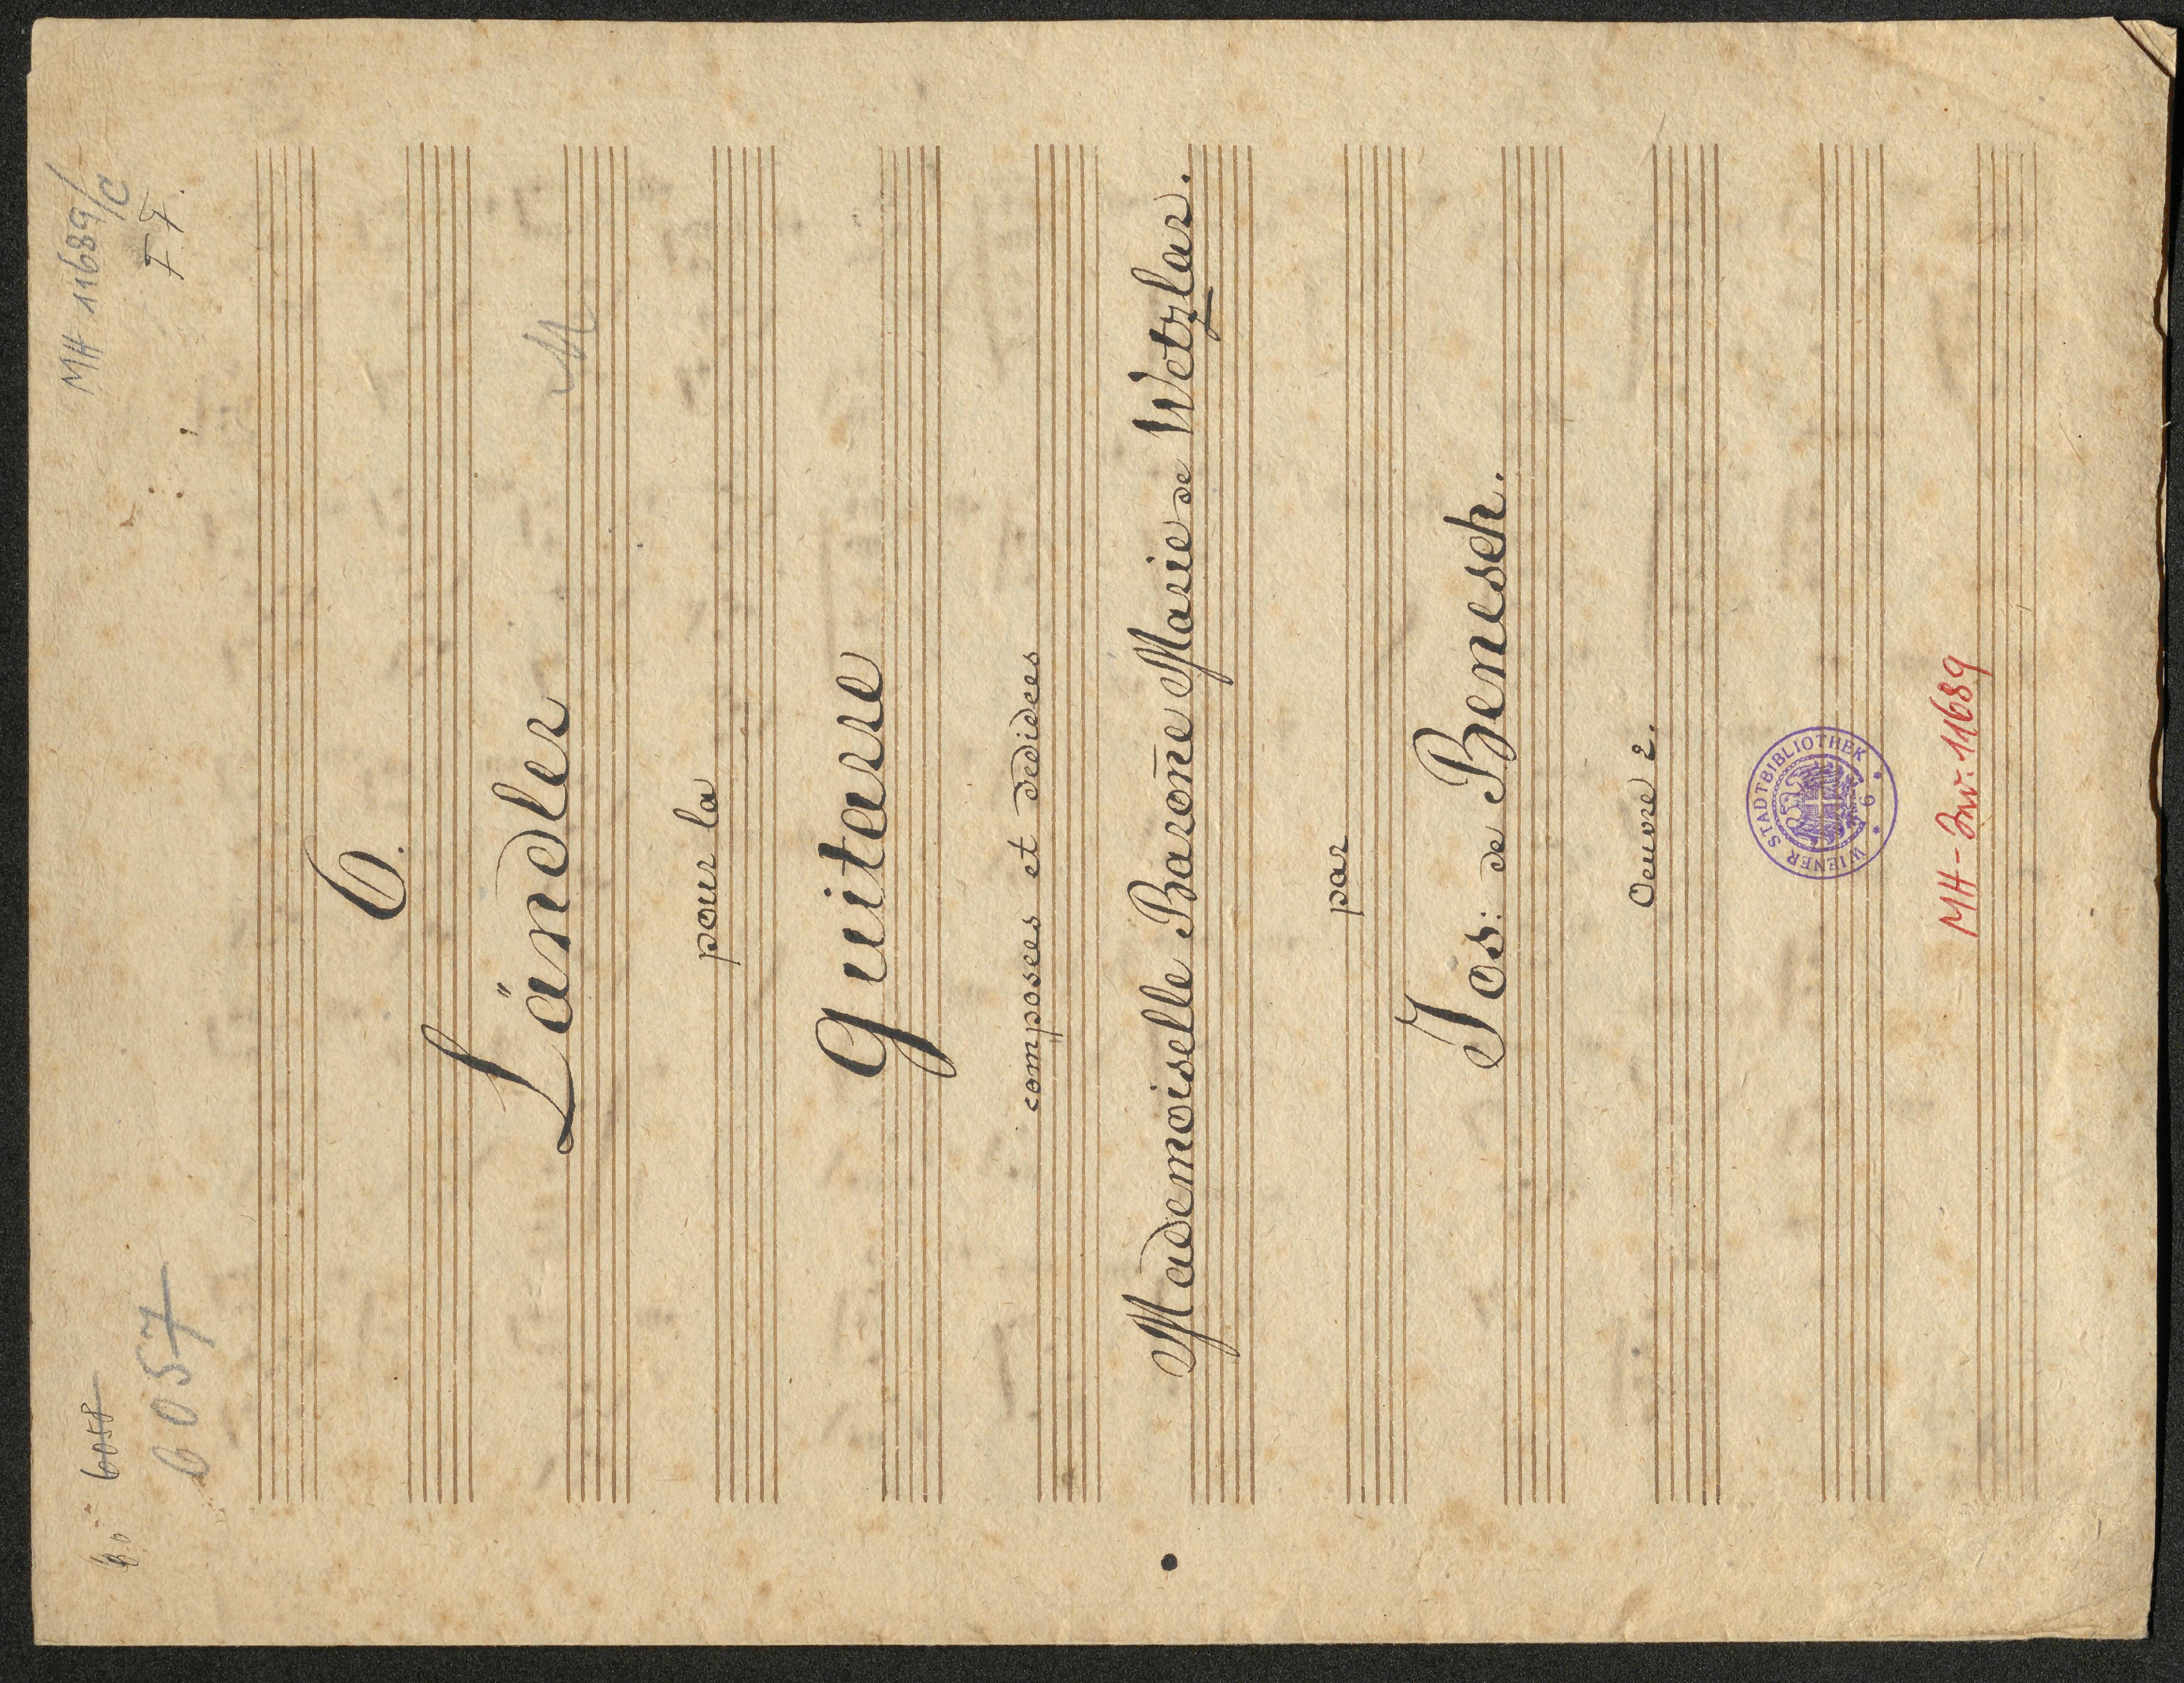 MH 11689/C
6058
6057
6.
Ländler
pour la
Guitarre
composees et dediées
Mademoiselle Baroñe Marie de Wetzlar.
par
Jos: de Benesch.
Oeuvre 2.
WIENER STADTBIBLIOTHEK
* 6 *
MH-Inv. 11689